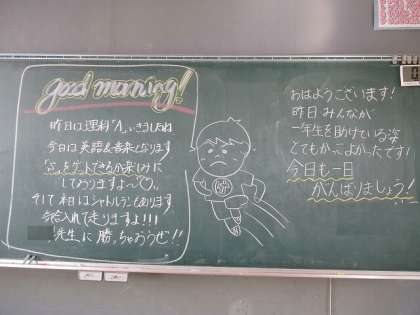 good morning!
昨日は理科「A」いきましたね
今日は英語&音楽となります
「S」をゲットできるか楽しみに
しておりますよ〜♡。
そして本日はシャトルランもあります
気合入れて走りますよ!!!
先生に勝っちゃおうぜ!!
おはようございます!
昨日みんなが
一年生を助けている姿
とてもかっこよかったです!
今日も一日
がんばりましょう!